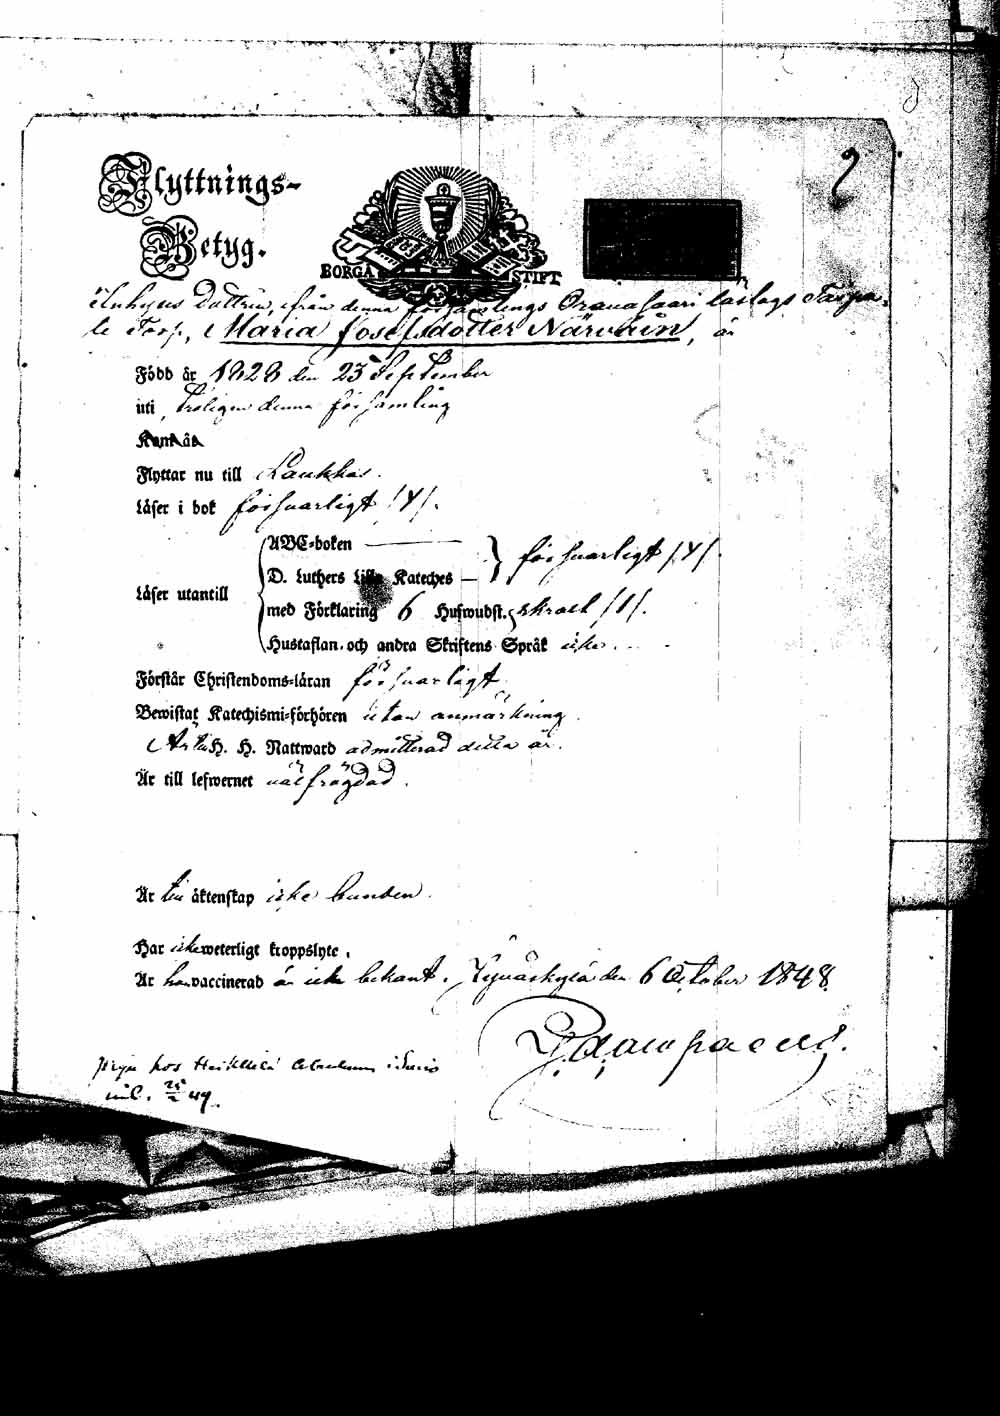 Flyttnings-
Betyg.
BORGÅ STIFT
Inhyses Dottren, ifrån denna församlings Oravasaari läslags Taipa-
le Torp, Maria Josefsdotter Närväin, är
Född år 1828 den 23 September
uti, troligen denna församling
Kunk är
Flyttar nu till Laukkas.
Läser i bok försvarligt /4/.
Läser utantill
ABC-boken
D. Luthers Lilla Kateches
försvarligt /4/.
med Förklaring 6 Hufwudst. svack /1/.
Hustaflan och andra Skriftens Språk icke
Förstår Christendoms-läran försvarligt
Bewistat Katechismi-förhören utan anmärkning.
Är till H. H. Nattward admitterad detta år.
Är till lefwernet välfrägdad.
Är till äktenskap icke bunden.
Har icke weterligt kroppslyte.
Är vaccinerad är icke bekant. Jyväskylä den 6 October 1848.
hos
49.